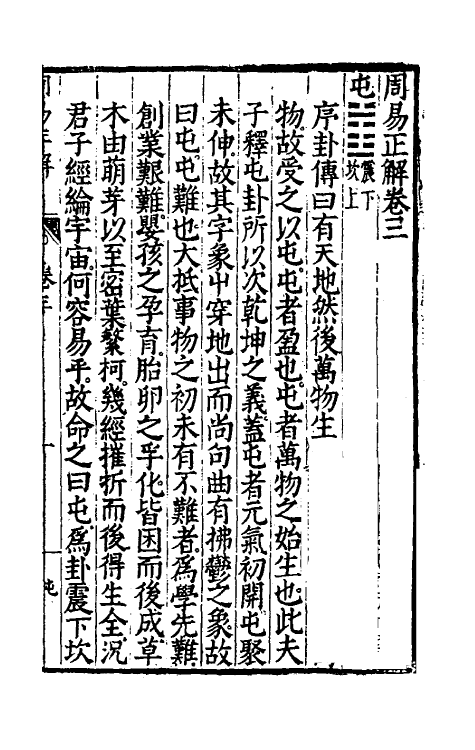 周易正解卷三
屯䷂震下坎上
序卦傳曰有天地然後萬物生
物故受之以屯屯者盈也屯者萬物之始生也此夫
子釋屯卦所以次乾坤之義蓋屯者元氣初開屯聚
未伸故其字象屮穿地出而尚句曲有拂鬱之象故
曰屯屯難也大抵事物之初未有不難者爲學先難
創業艱難嬰孩之孕育胎卵之孚化皆困而後成草
木由萌芽以至密葉繁柯幾經摧折而後得生全况
君子經綸宇宙何容易乎故命之曰屯爲卦震下坎
屯